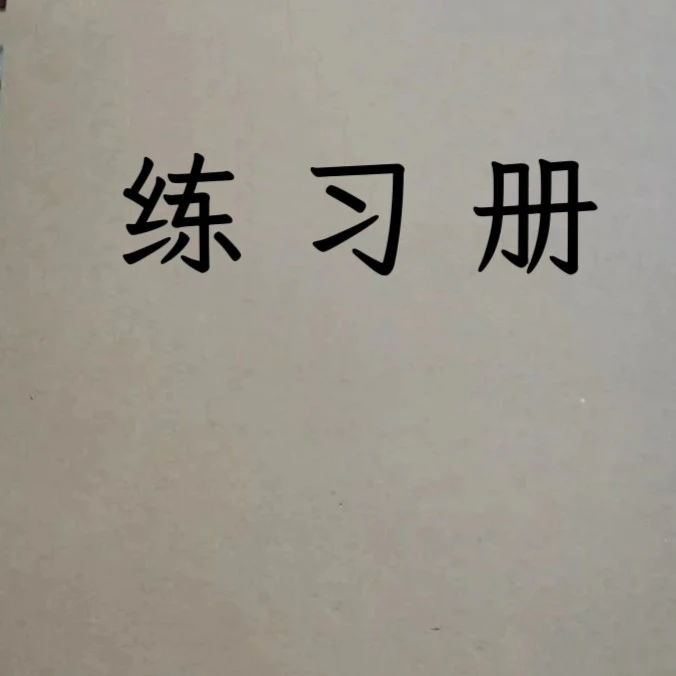 练习册